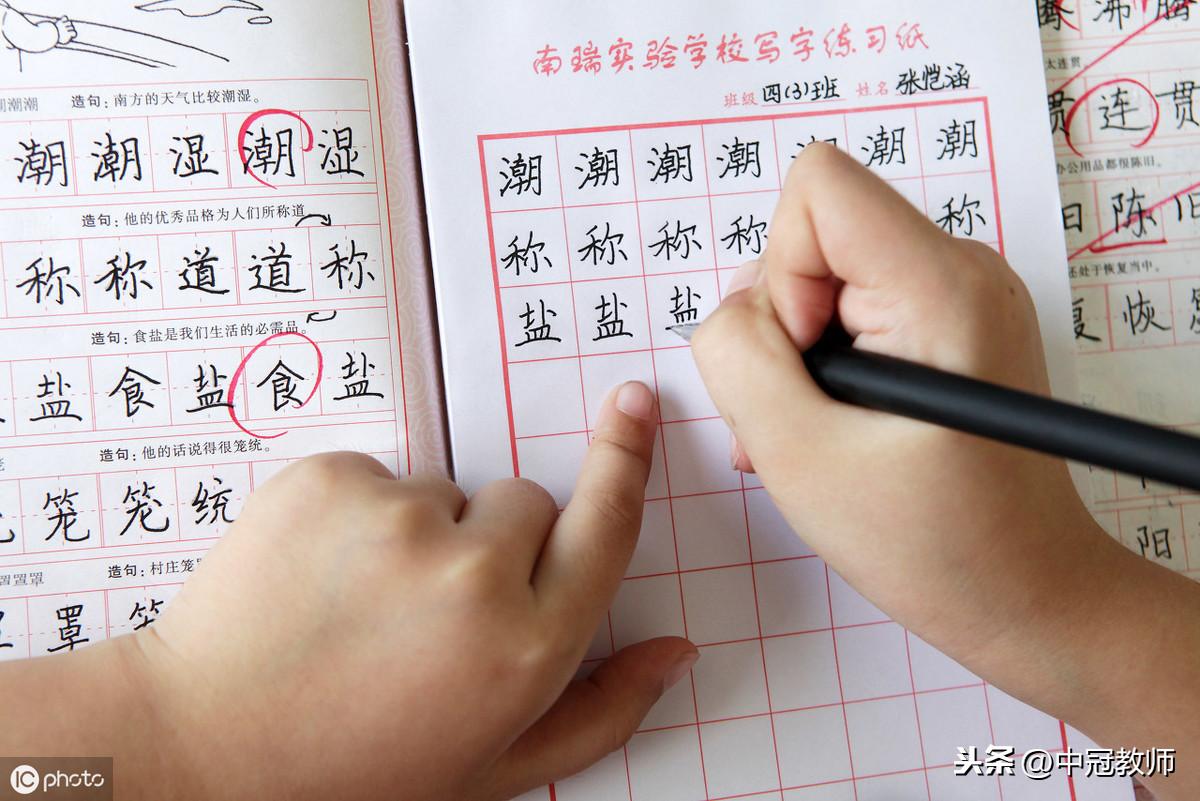 造句：南方的天气比较潮湿。
潮 潮 湿 潮 湿
造句：他的优秀品格为人们所称道
称 称 道 道 称
造句：食盐是我们生活的必需品。
盐 食 盐 食 盐
造句：他的话说得很笼统。
笼 笼 统
造句：村庄笼
罩
南瑞实验学校写字练习纸
班级 四(3)班 姓名 张恺涵
潮 潮 潮 潮 潮 潮 潮
称 称 称 称 称
盐 盐 盐
沸 腾
太连贯
贯 连 贯
办公用品都很陈旧。
陈 旧
还处于恢复当中。
复 恢
阳
IC photo
头条 @中冠教师